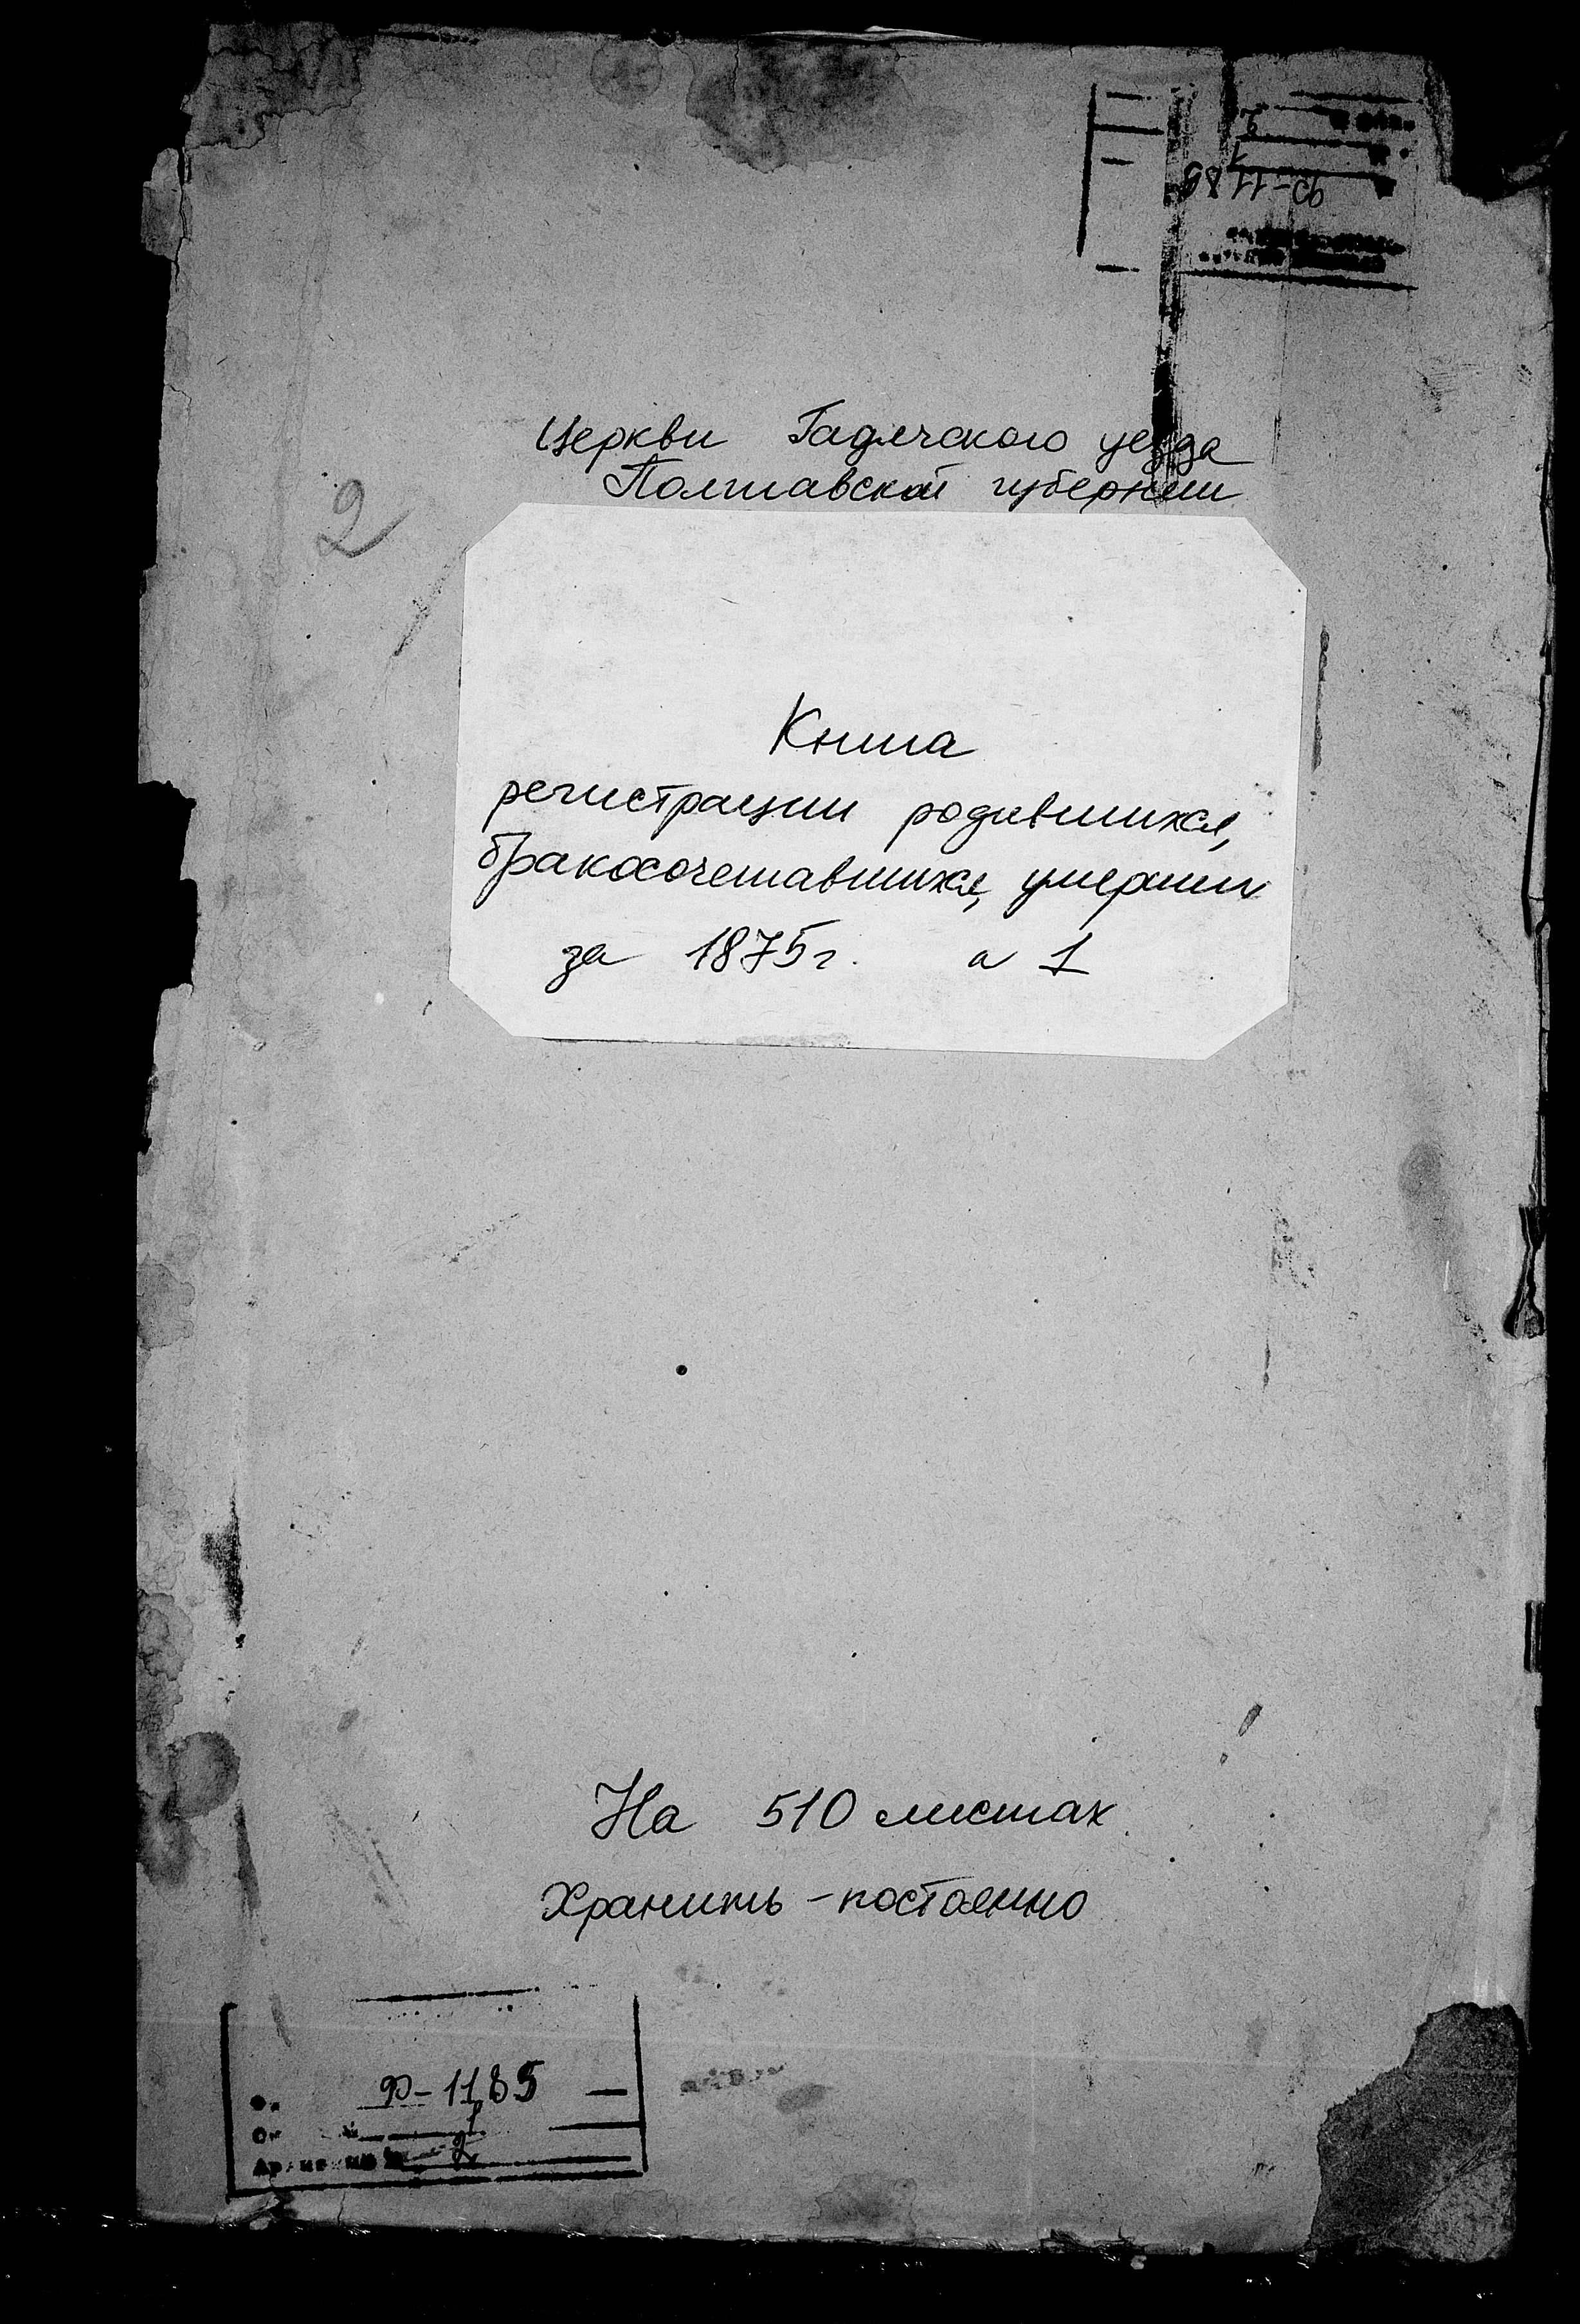 Церкви Гадячского уезда
Полтавской губернии
2
Книга
регистрации родившихся,
бракосочетавшихся, умерших
за 1875г. а 1
На 510 листах
Хранить - постоянно
Ф-1185
1
2